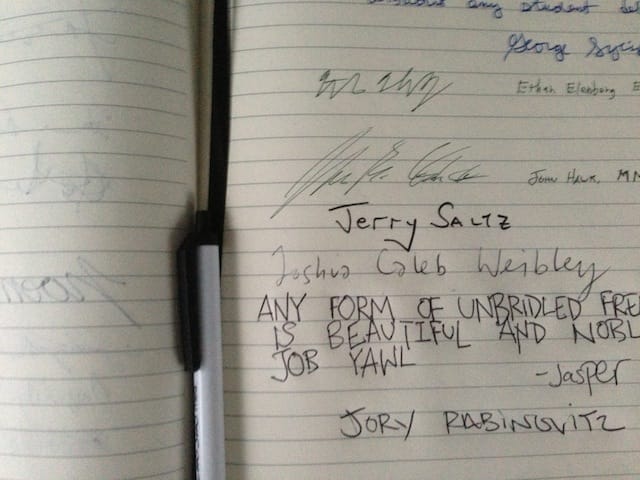 any student
George
Ethan Elenberg E
John Hawk, MM
Jerry SALTZ
Joshua Caleb Weibley
ANY FORM OF UNBRIDLED FRE
IS BEAUTIFUL AND NOBL
JOB YAWL
-Jasper
JORY RABINOVITZ